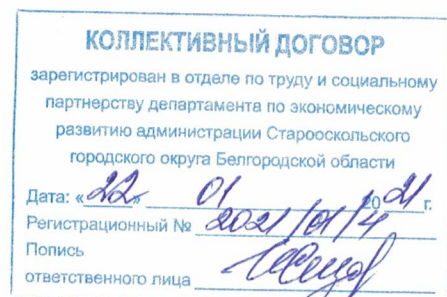 КОЛЛЕКТИВНЫЙ ДОГОВОР
зарегистрирован в отделе по труду и социальному
партнерству департамента по экономическому
развитию администрации Старооскольского
городского округа Белгородской области
Дата: «22» 01 2021г.
Регистрационный № 2021/01/4
Попись
ответственного лица